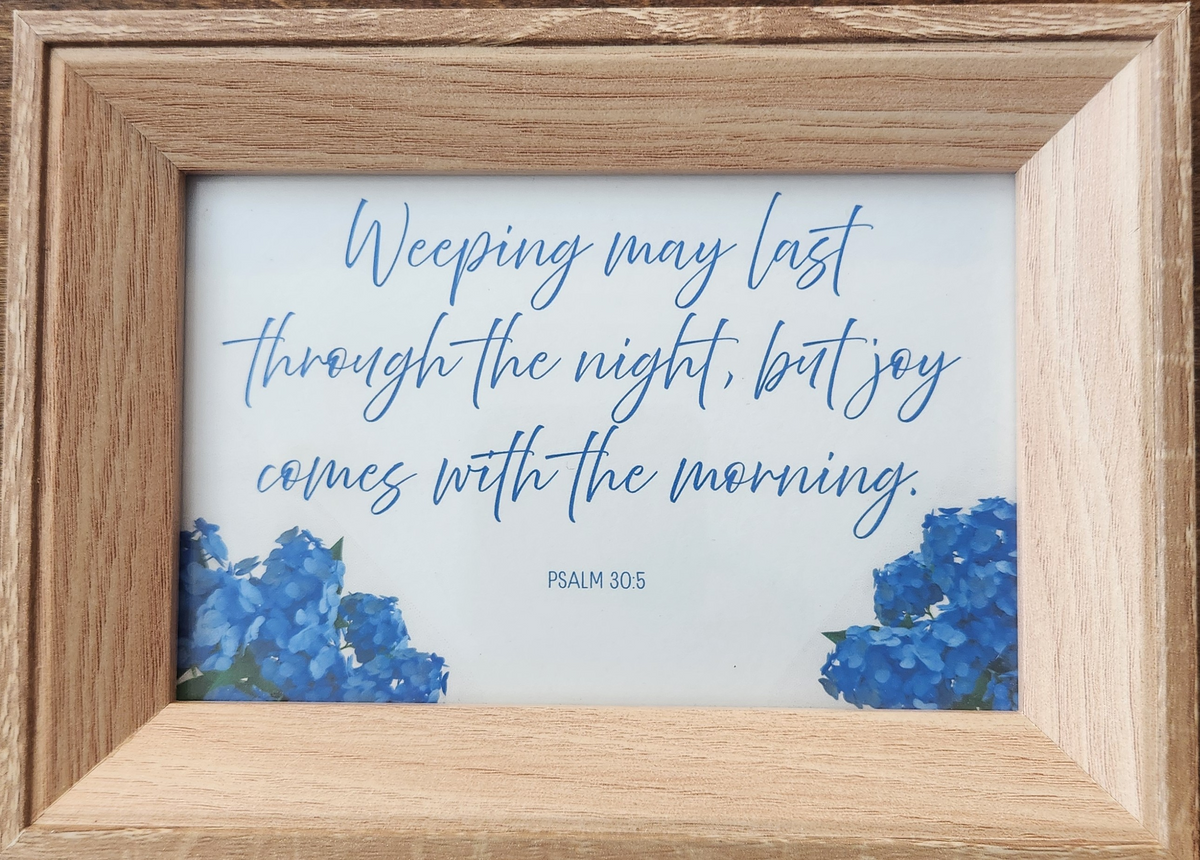 Weeping may last
through the night, but joy
comes with the morning.
PSALM 30:5